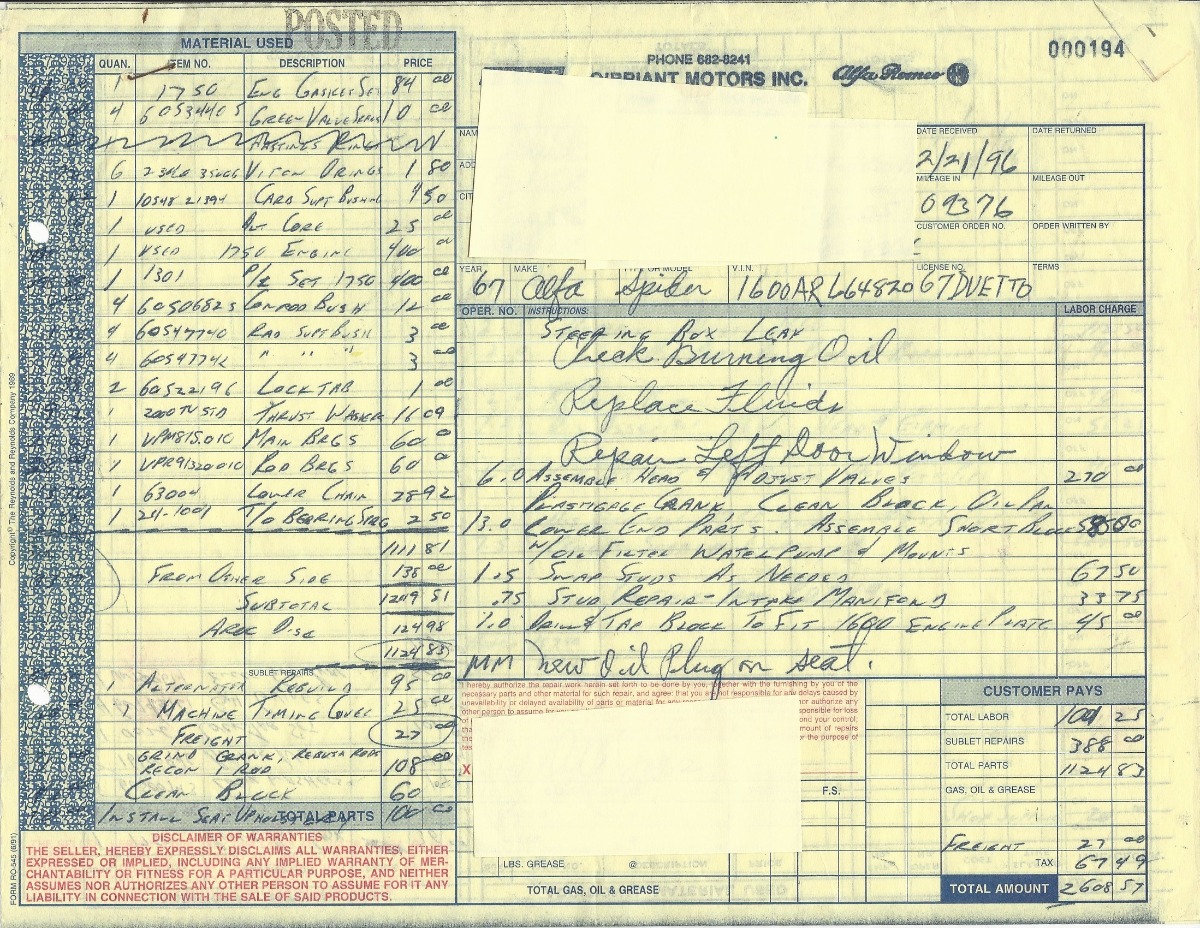 POSTED
000194
MATERIAL USED
QUAN. ITEM NO. DESCRIPTION PRICE
1 1750 ENG GASKET SET 84 00
4 GREEN VALVE SEALS 10 00
HASTINGS RINGS
6 VITON ORINGS 1 80
1 10548 21394 CARB SUPT BUSHING 4 50
1 USED ALT CORE 25 00
1 USED 1750 ENGINE 400 00
1 1301 P/L SET 1750 400 00
4 60506825 CONROD BUSH 12 00
4 60547740 RAD SUPT BUSH 3 00
4 60547742 " " " 3 00
2 60522196 LOCK TAB 1 00
1 2000 TV STD THRUST WASHERS 16 09
1 VPM815.010 MAIN BRGS 60 00
1 VPR91320010 ROD BRGS 60 00
1 63004 LOWER CHAIN 28 92
1 211-1001 T/O BEARING 2 50
1111 81
FROM OTHER SIDE 138 00
SUBTOTAL 1249 81
AROC DISC 124 98
1124 83
SUBLET REPAIRS
1 ALTERNATOR REBUILD 95 00
1 MACHINE TIMING COVER 25 00
FREIGHT 27 00
GRIND CRANK, REBUSH RODS
RECON 1 ROD 108 00
CLEAN BLOCK 60
INSTALL SEAT 100 00
TOTAL PARTS
DISCLAIMER OF WARRANTIES
THE SELLER, HEREBY EXPRESSLY DISCLAIMS ALL WARRANTIES, EITHER
EXPRESSED OR IMPLIED, INCLUDING ANY IMPLIED WARRANTY OF MER-
CHANTABILITY OR FITNESS FOR A PARTICULAR PURPOSE, AND NEITHER
ASSUMES NOR AUTHORIZES ANY OTHER PERSON TO ASSUME FOR IT ANY
LIABILITY IN CONNECTION WITH THE SALE OF SAID PRODUCTS.
FORM RO-545 (6/91)
Copyright © The Reynolds and Reynolds Company 1989
PHONE 682-8241
CIPRIANT MOTORS INC. Alfa Romeo
NAM
ADD
CIT
DATE RECEIVED DATE RETURNED
2/21/96
MILEAGE IN MILEAGE OUT
09376
CUSTOMER ORDER NO. ORDER WRITTEN BY
YEAR MAKE TYPE OR MODEL V.I.N. LICENSE NO. TERMS
67 Alfa Spider 1600AR664820 67DUETTO
OPER. NO. INSTRUCTIONS: LABOR CHARGE
STEERING BOX LEAK
Check Burning Oil
Replace Fluids
Repair Left Door Window
6.0 ASSEMBLE HEAD & ADJUST VALVES 270 00
PLASTIGAGE CRANK, CLEAN BLOCK, OIL PAN
13.0 LOWER END PARTS. ASSEMBLE SHORT BLOCK 585 00
W/ OIL FILTER WATER PUMP & MOUNTS
1.5 SWAP STUDS AS NEEDED 67 50
.75 STUD REPAIR - INTAKE MANIFOLD 33 75
1.0 DRILL & TAP BLOCK TO FIT 1600 ENGINE PLATE 45 00
MM new Oil Plug on seal.
I hereby authorize the repair work herein set forth to be done by you, together with the furnishing by you of the
necessary parts and other material for such repair, and agree that you are not responsible for any delays caused by
unavailability or delayed availability of parts or material for any
other person to assume for
responsible for loss
mount of repairs
or the purpose of
X
F.S.
LBS. GREASE @
TOTAL GAS, OIL & GREASE
CUSTOMER PAYS
TOTAL LABOR 1001 25
SUBLET REPAIRS 388 00
TOTAL PARTS 1124 83
GAS, OIL & GREASE
FREIGHT 27 00
TAX 67 49
TOTAL AMOUNT 2608 57